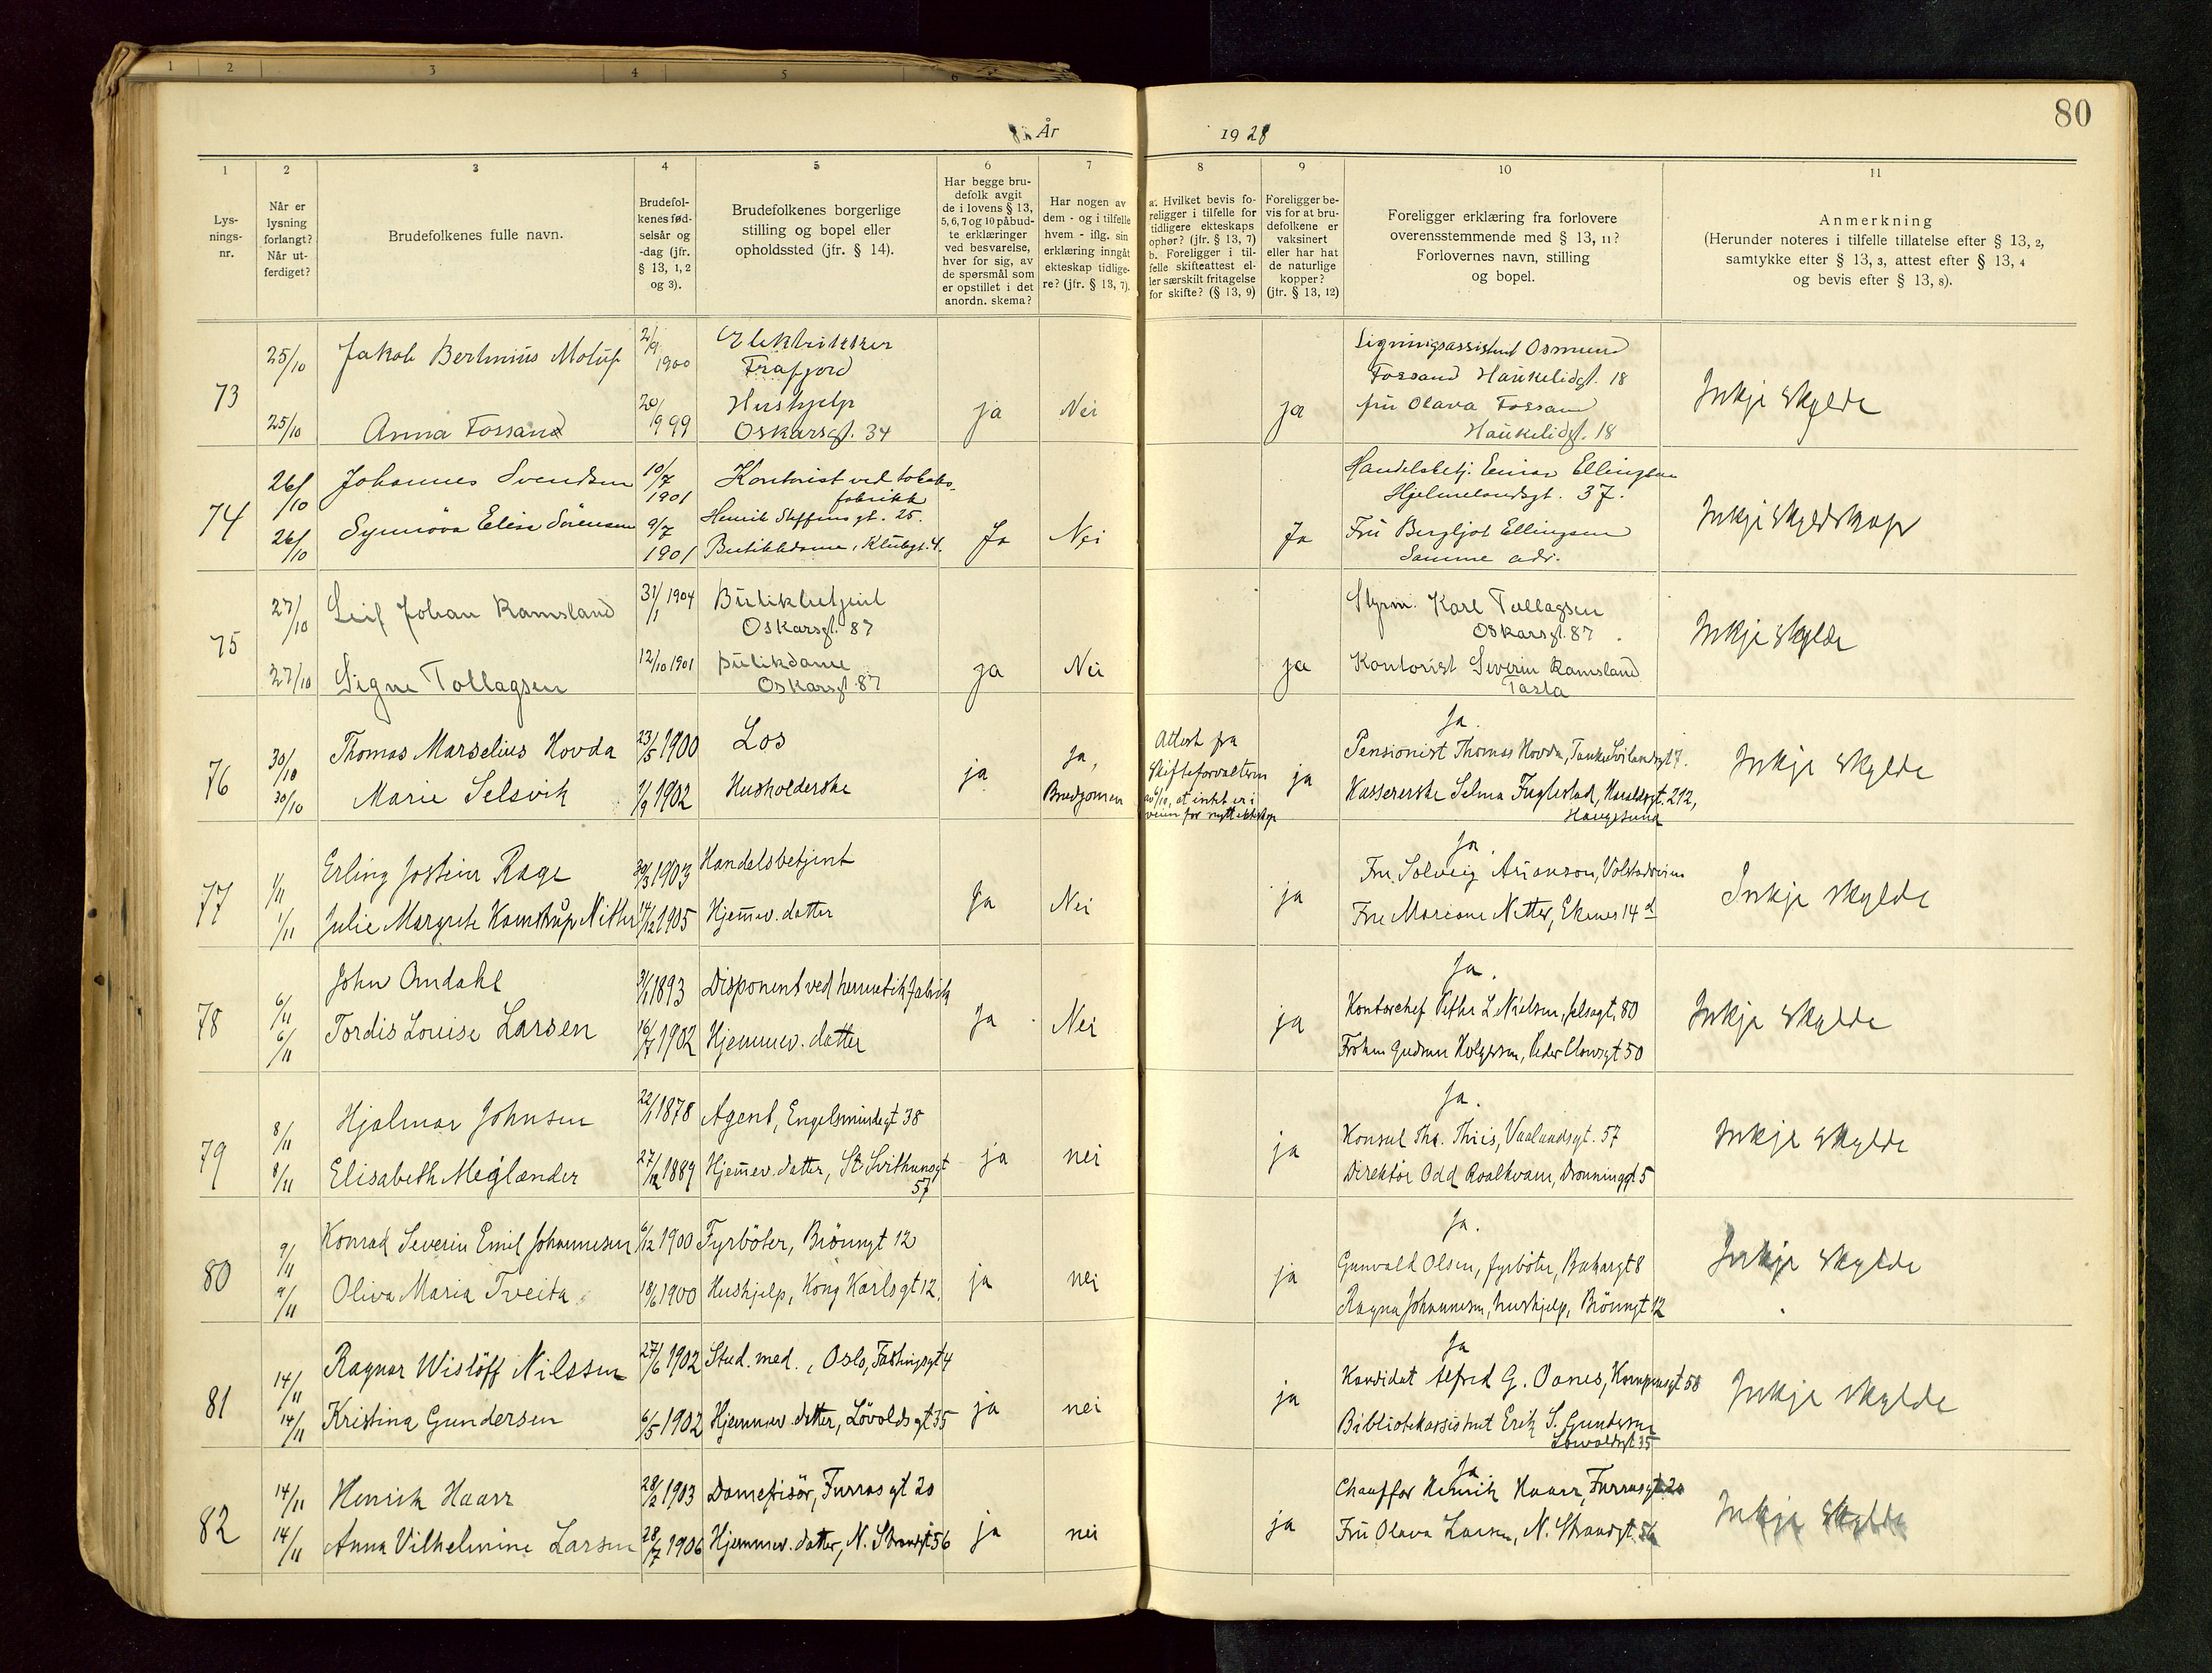 1 2 3 4 5 6
80
År 1928
1 2 3 4 5 6 7 8 9 10 11
Lys-
nings-
nr.
Når er
lysning
forlangt?
Når ut-
ferdiget?
Brudefolkenes fulle navn.
Brudefol-
kenes fød-
selsår og
-dag (jfr.
§ 13, 1, 2
og 3).
Brudefolkenes borgerlige
stilling og bopel eller
opholdssted (jfr. § 14).
Har begge bru-
defolk avgit
de i lovens § 13,
5, 6, 7 og 10 påbud-
te erklæringer
ved besvarelse,
hver for sig, av
de spørsmål som
er opstillet i det
anordn. skema?
Har nogen av
dem - og i tilfelle
hvem - iflg. sin
erklæring inngåt
ekteskap tidlige-
re? (jfr. § 13, 7).
a. Hvilket bevis fo-
religger i tilfelle for
tidligere ekteskaps
ophør? (jfr. § 13, 7)
b. Foreligger i til-
felle skifteattest el-
ler særskilt fritagelse
for skifte? (§ 13, 9)
Foreligger be-
vis for at bru-
defolkene er
vaksinert
eller har hat
de naturlige
kopper?
(jfr. § 13, 12)
Foreligger erklæring fra forlovere
overensstemmende med § 13, 11?
Forlovernes navn, stilling
og bopel.
Anmerkning
(Herunder noteres i tilfelle tillatelse efter § 13, 2,
samtykke efter § 13, 3, attest efter § 13, 4
og bevis efter § 13, 8).
73
25/10 Jakob Bertinius 2/9 1900 Elektrikker
Frafjord
25/10 Anna Fossand 20/9 99 Hushjelp
Oskarsgt. 34
ja Nei ja
Ligningsassistent Osmund
Fossand Haukelidgt. 18
fru Olava Fossand
Haukelidgt. 18
Inkje skylde
74
26/10 Johannes Svendsen 10/7 1901 Kontorist ved tobaks-
fabrikk
Henrik Steffensgt. 25.
26/10 Synnöva Elise Sörensen 9/7 1901 Butikkdame, Klubgt. 4.
Ja Nei Ja
Handelsbetj. Einar Ellingsen
Hjelmelandsgt. 37.
Fru Bergljot Ellingsen
Samme adr.
Inkje skyldskap
75
27/10 Leif Johan Ramsland 31/1 1904 Butikbetjent
Oskarsgt. 87
27/10 Signe Tollagsen 12/10 1901 butikdame
Oskarsgt. 87
ja Nei ja
Styrm. Karl Tollagsen
Oskarsgt. 87
Kontorist Severin Ramsland
Tasta
Inkje skylde
76
30/10 Thomas Marselius Hovda 23/5 1900 Los
30/10 Marie Selsvik 1/9 1902 Husholderske
ja Ja,
Brudgomen
Attest fra
skifteforvalteren
at intet er i
veien for nytt ekteskap
ja
Ja.
Pensionist Thomas Hovda,
Kassererske Selma Fuglestad, Haraldsgt. 212,
Haugesund
Inkje skylde
77
1/11 Erling Jostein Rage 30/3 1903 Handelsbetjent
1/11 Julie Margrete Kamstrup Nitter 14/12 1905 Hjemmev. datter
Ja Nei ja
Ja.
Fru Solveig
Fru Mariane Nitter, Ekenes 14 d
Inkje skylde
78
6/11 John Omdahl 31/1 1893 Disponent ved hermetikfabrik
6/11 Tordis Louise Larsen 16/7 1902 Hjemmev. datter
Ja Nei ja
Ja.
Kontorchef Pether L. Nielsen, 80
Fröken Gudrun Holgersen, Peder Clowsgt 50
Inkje skylde
79
8/11 Hjalmar Johnsen 22/1 1878 Agent, Engelsmindegt 38
8/11 Elisabeth Meglænder 27/12 1889 Hjemmev. datter, St. Svithunsgt
57
ja nei ja
Ja.
Konsul Th. Thiis, Vaalandsgt. 57
Direktör Odd Roalkvam, Dronninggt 5
Inkje skylde
80
9/11 Konrad Severin Emil Johannesen 6/12 1900 Fyrböter, Brönngt 12
9/11 Oliva Maria Tveita 18/6 1900 Hushjelp, Kong Karlsgt 12.
ja nei ja
Ja.
Gunvald Olsen, fyrböter, Bakargt 8
Ragna Johannesen, hushjelp, Brönngt 12
Inkje skylde
81
14/11 Ragnar Wislöff Nilssen 27/6 1902 Stud. med., Oslo, Fastingsgt 4
14/11 Kristina Gundersen 6/5 1902 Hjemmev. datter, Lövoldsgt 35
ja nei ja
Ja
Kandidat Alfred G. Oanes, 58
Bibliotekassistent Erik S. Gundersen
Lövoldsgt 35
Inkje skylde
82
14/11 Henrik Haarr 28/2 1903 Damefrisör, Furrasgt 20
14/11 Anna Vilhelmine Larsen 28/7 1906 Hjemmev. datter, N. Strandgt 56
ja nei ja
Ja
Chauffør Henrik Haarr, Furrasgt. 20
Fru Olava Larsen, N. Strandgt. 56
Inkje skylde